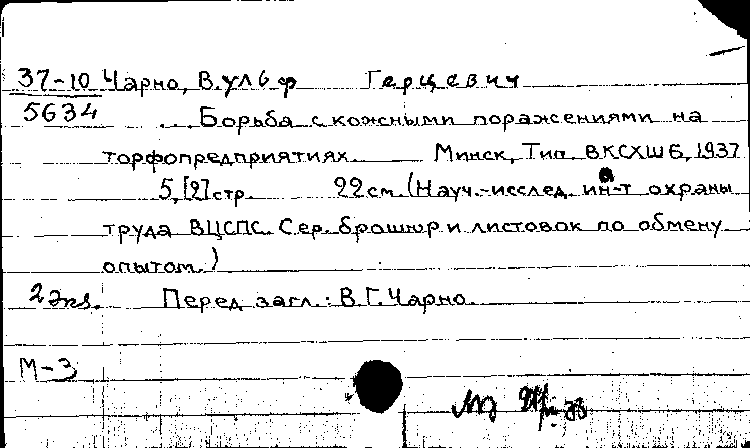 37-10 Чарно, Вульф Герцевич
5634 ... Борьба с кожными поражениями на
торфопредприятиях. Минск, Тип. ВКСХШБ, 1937
5, [2] стр. 22 см. (Науч.-исслед. ин-т охраны
труда ВЦСПС. Сер. брошюр и листовок по обмену
опытом.)
2 экз. Перед загл.: В.Г. Чарно.
М-3